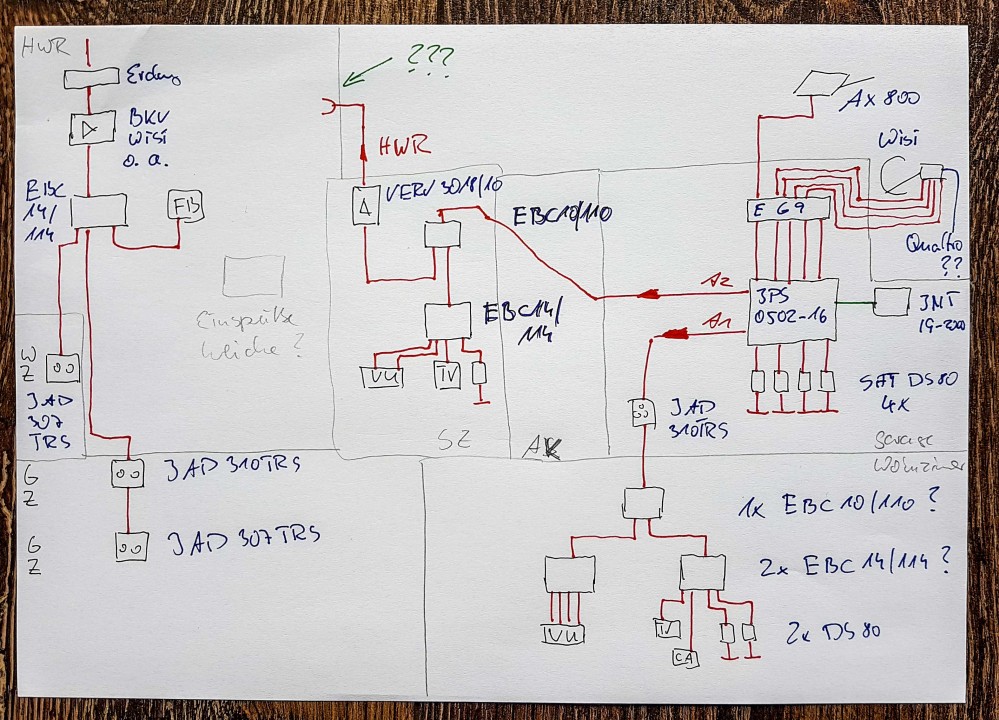 HWR
Erdung
BKV
WISI
o. a.
EBC
14/
114
FB
Einspeise
Weiche ?
W
Z
JAD
307
TRS
G
Z
JAD 310TRS
G
Z
JAD 307TRS
???
HWR
VERV 3018/10
EBC10/110
EBC14/
114
VU
TV
SZ
AK
Ax 800
Wisi
E G 9
Quattro
??
JPS
0502-16
A2
A1
JNT
19-2000
SAT DS80
4x
JAD
310TRS
Wohnzimmer
1x EBC 10/110 ?
2x EBC 14/114 ?
VU
TV
CA
2x DS80